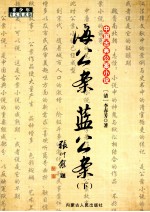 中国古典公案小说
海公案
蓝公案
(下)
[清]李春芳 著
题
内蒙古人民出版社